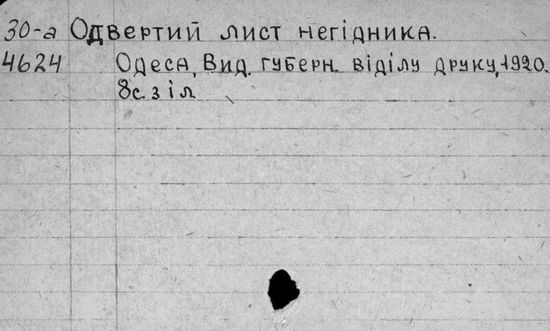 30-а Одвертий лист негідника.
4624 Одеса, Вид. губерн. віділу друку, 1920.
8с. з іл.